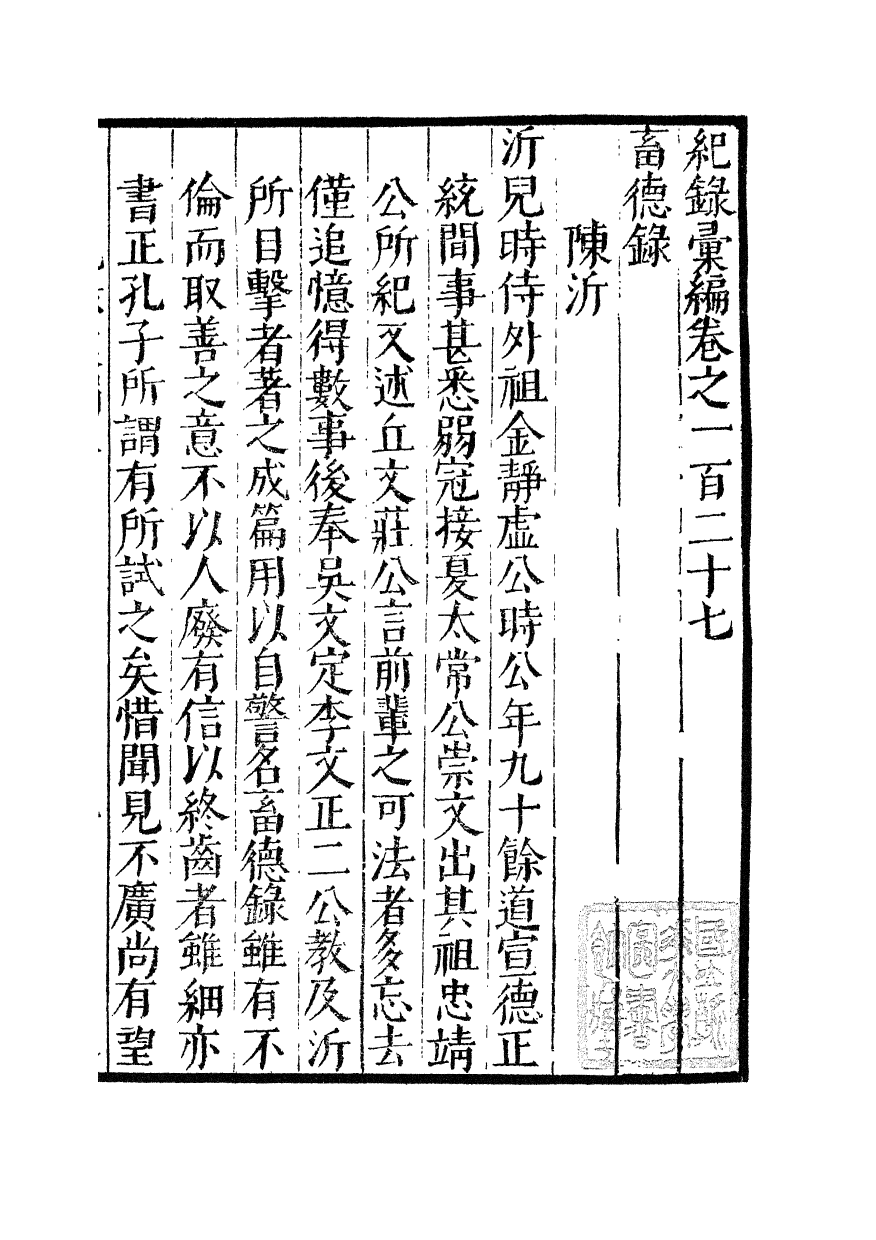 紀錄彙編卷之一百二十七
畜德錄
陳沂
沂兒時侍外祖金靜虛公時公年九十餘道宣德正
統間事甚悉弱冠接夏太常公崇文出其祖忠靖
公所紀又述丘文莊公言前輩之可法者多忘去
僅追憶得數事後奉吳文定李文正二公教及沂
所目擊者著之成篇用以自警名畜德錄雖有不
倫而取善之意不以人廢有信以終齒者雖細亦
書正孔子所謂有所試之矣惜聞見不廣尚有望